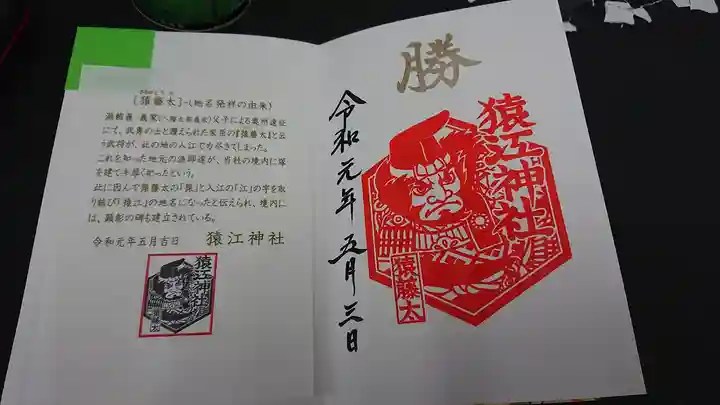 [猿藤太]-(地名発祥の由来)
源頼義 義家(八幡太郎義家)父子による奥州遠征
にて、武勇の士と讃えられた家臣の『猿藤太』と云
う武将が、此の地の入江で力尽きてしまった。
これを知った地元の漁師達が、当社の境内に塚
を建て手厚く祀ったという。
此に因んで猿藤太の「猿」と入江の「江」の字を取
り結び「猿江」の地名になったと伝えられ、境内に
は、顕彰の碑も建立されている。
令和元年五月吉日 猿江神社
猿江神社
猿藤太
勝
令和元年 五月三日
猿江神社
猿藤太